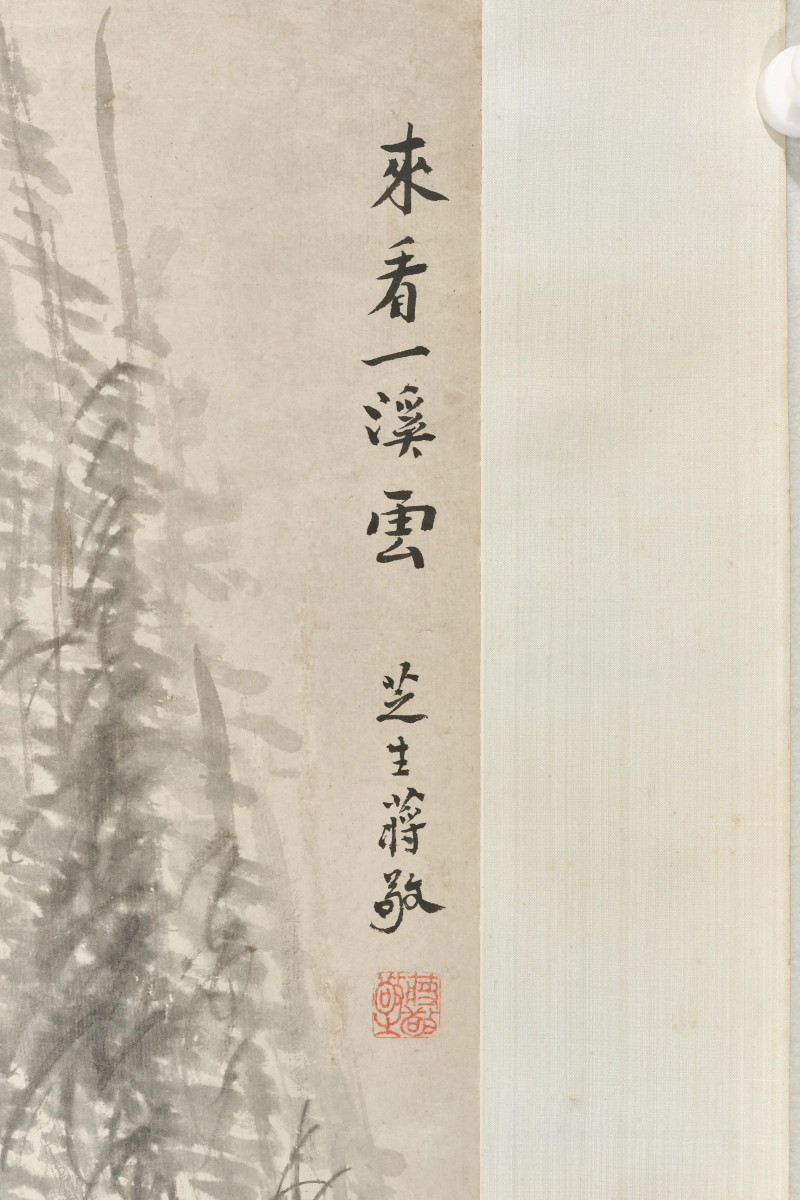 來看一溪雲 芝生蔣敬